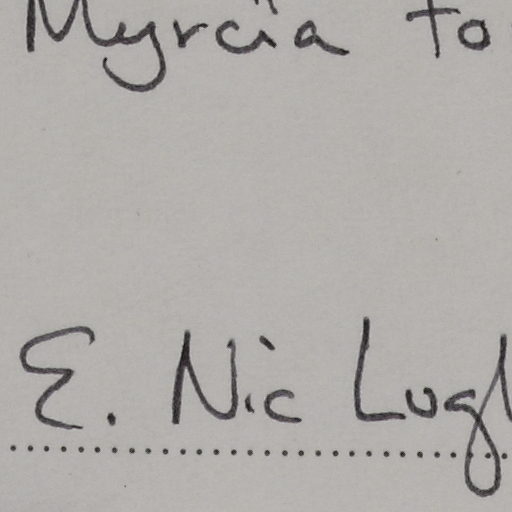 Myrcia to
E. Nic Lugh